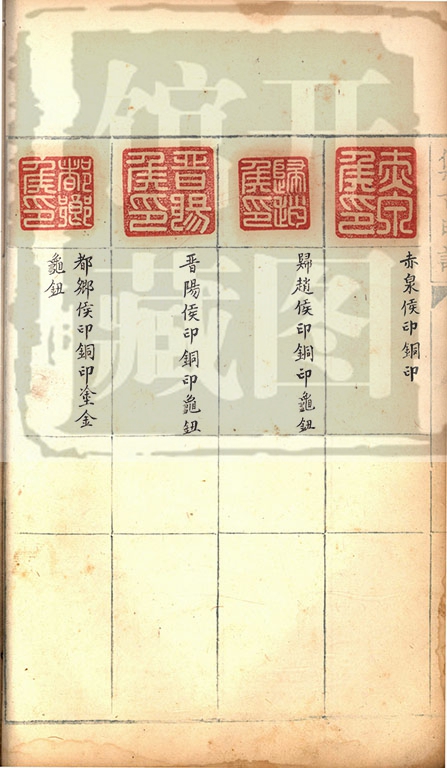 赤泉侯印
赤泉侯印銅印
歸趙侯印
歸趙侯印銅印龜鈕
晋陽侯印
晋陽侯印銅印龜鈕
都鄉侯印
都鄉侯印銅印塗金
龜鈕
开图
馆藏